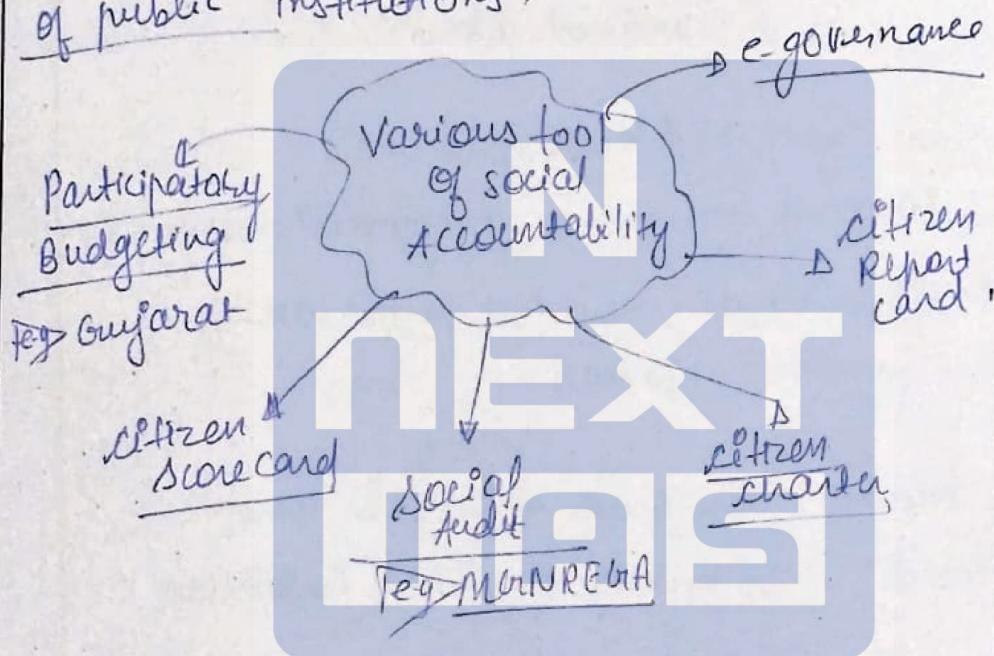 of public institutions.
e-governance
Various tool
of social
Accountability
Participatory
Budgeting
eg> Gujarat
citizen
Report
card.
citizen
scorecard
social
Audit
eg> MGNREGA
citizen
charter
NEXT
IAS